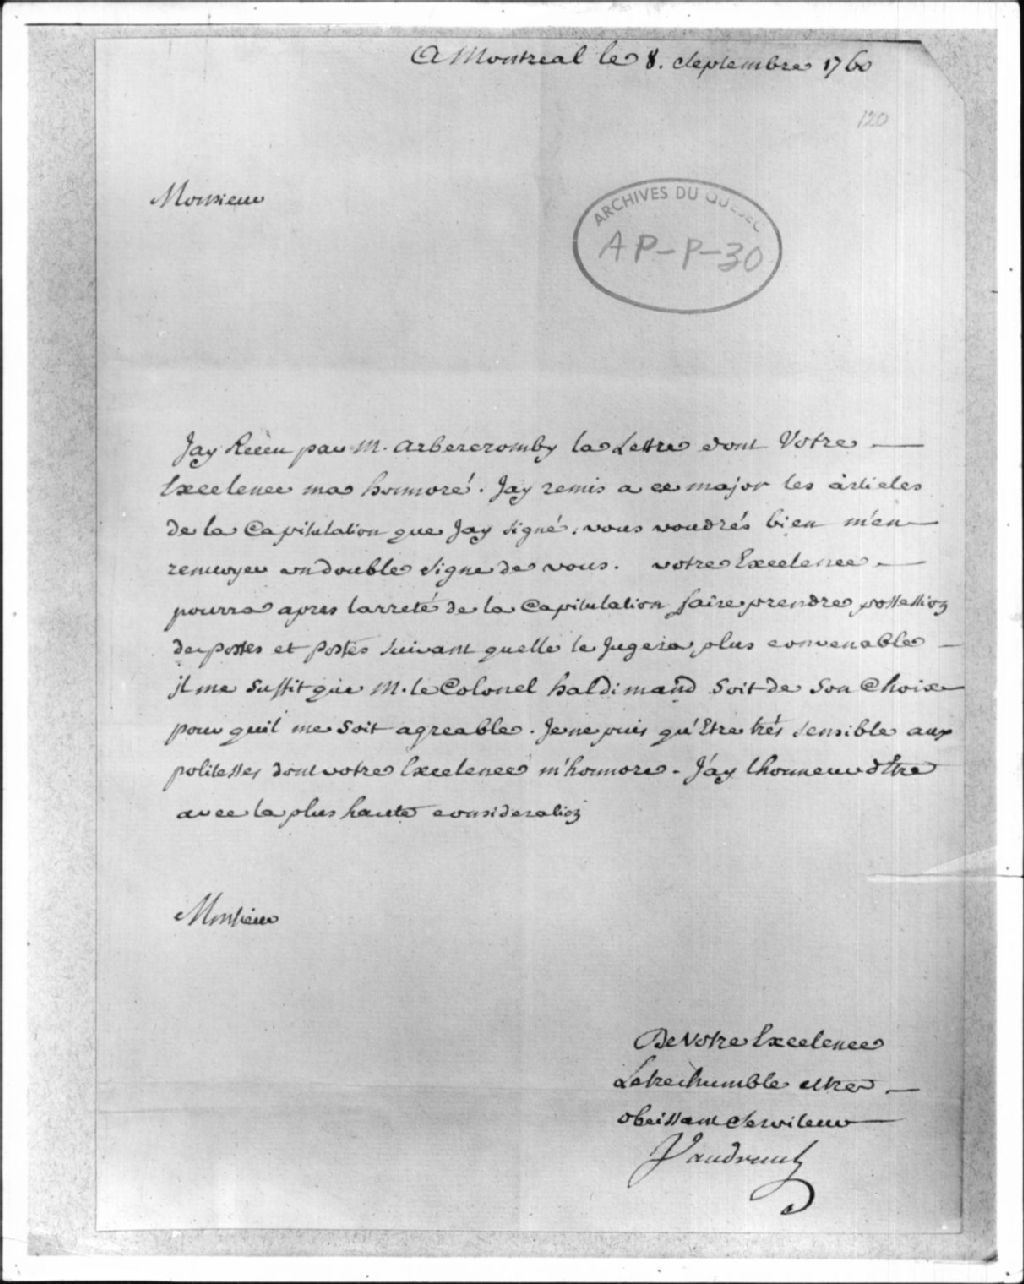 A Montreal le 8. Septembre 1760
120
Monsieur
ARCHIVES DU QUEBEC
AP-P-30
Jay Receu par M. Arbercromby la Lettre dont Votre
Excelence ma honnoré. Jay remis a ce major les articles
de la Capitulation que Jay signé. vous voudrés bien m'en
renvoyer un double signe de vous. votre Excelence
pourra apres larreté de la Capitulation faire prendre possession
des portes et postes suivant quelle le Jugera plus convenable
il me suffit que M. le Colonel haldimand soit de son Choix
pour quil me soit agreable. Je ne puis qu'Etre trés sensible aux
politesses dont votre Excelence m'honnore. J'ay lhonneur dEtre
avec la plus haute consideration
Monsieur
De Votre Excelence
Le tres humble et tres
obeissant Serviteur
Vaudreuil